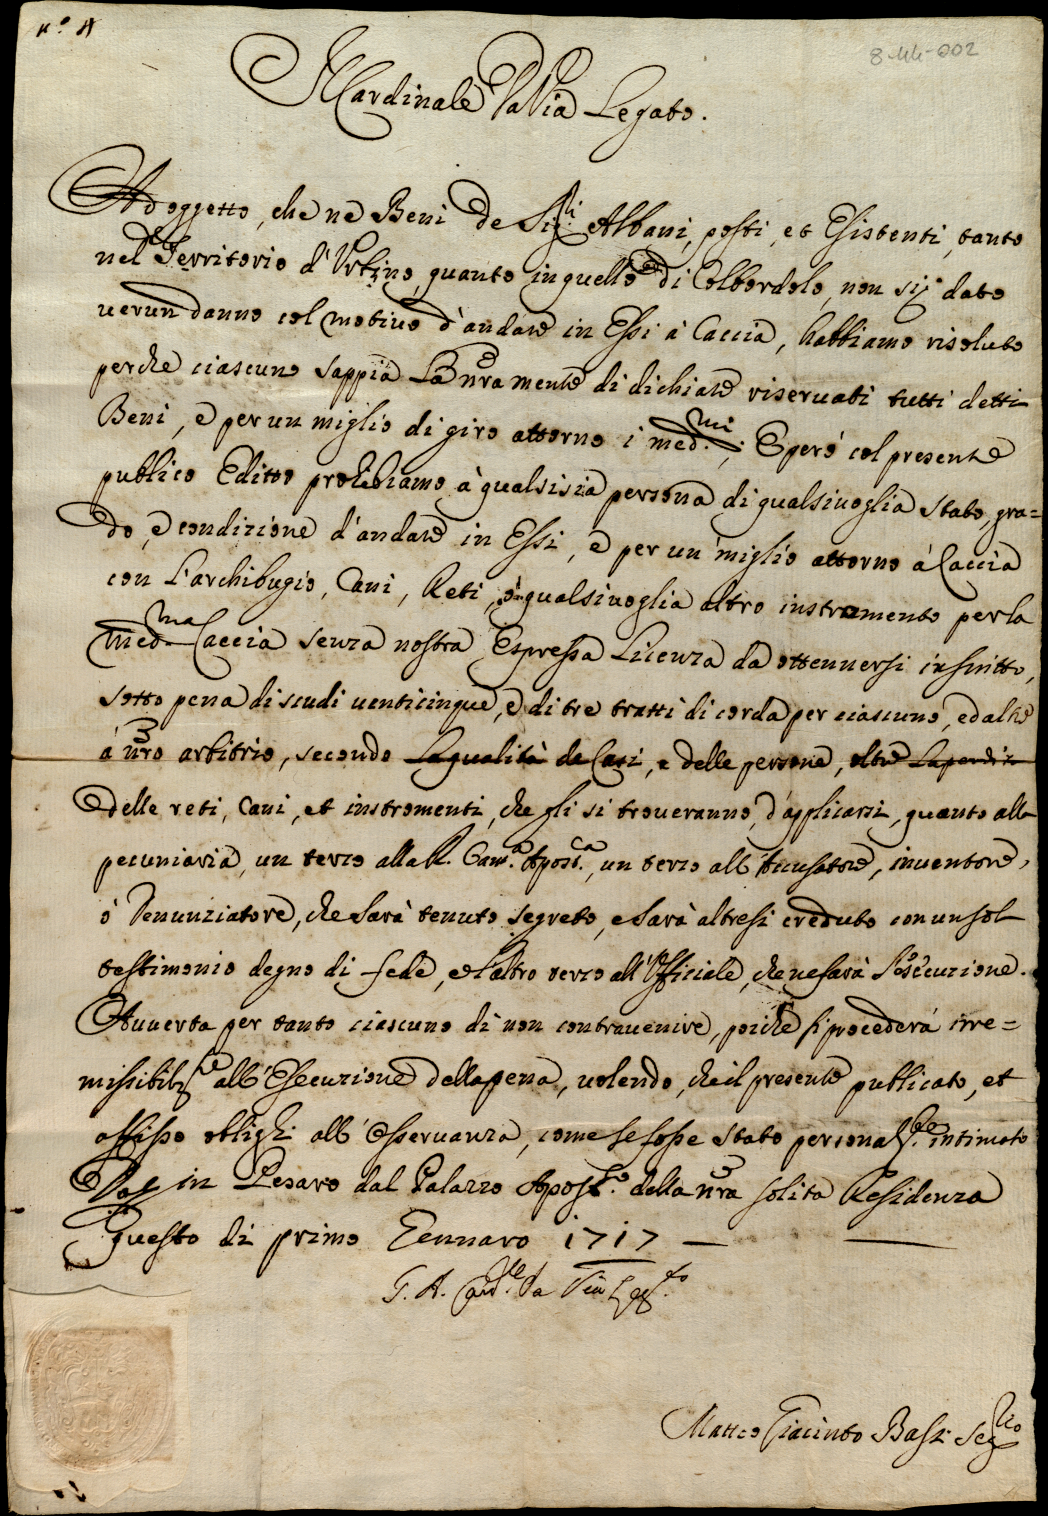 n.º 4
8-44-002
Il Cardinale Da Via Legato.
Ad oggetto, che ne Beni de Sig.ri Albani, posti, et Esistenti, tanto
nel Territorio d'Urbino, quanto in quello di Colbordolo, non sij dato
uerun danno col motiuo d'andare in Essi à Caccia, habbiamo risoluto
perche ciascuno sappia La nra mente di dichiare riseruati tutti detti
Beni, e per un miglio di giro attorno i med.mi; E però col presente
publico Editto prohibiamo à qualsisia persona di qualsiuoglia stato, gra=
do, e condizione d'andare in Essi, e per un miglio attorno à Caccia
con L'archibugio, Cani, Reti, ò qualsiuoglia altro instromento per la
med.ma Caccia senza nostra Espressa Licenza da ottennersi in scritto,
sotto pena di scudi uenticinque, e di tre tratti di corda per ciascuno, ed altre
á nro arbitrio, secondo La qualità de Casi, e delle persone, oltre La perdita
delle reti, Cani, et instromenti, che gli si troueranno, d'applicarsi, quanto alla
pecuniaria, un terzo alla R. Cam.a Apost.ca, un terzo all'Accusatore, inuentore,
ò Denunziatore, che sarà tenuto segreto, e sarà altresi creduto con un sol
testimonio degno di fede, e l'altro terzo all'Officiale, che ne farà l'esecuzione.
Auuerta per tanto ciascuno di non contrauenire, poiche si procederá irre=
missibilm.te all'Esecuzione della pena, uolendo, che il presente publicato, et
affisso oblighi all'osseruanza, come se fosse stato personalm.te intimato
Dat in Pesaro dal Palazzo Apost.o della nra solita Residenza
questo di primo Gennaro 1717 —
G. A. Card.le Da Via Leg.to
Matteo Giacinto Bassi Seg.rio